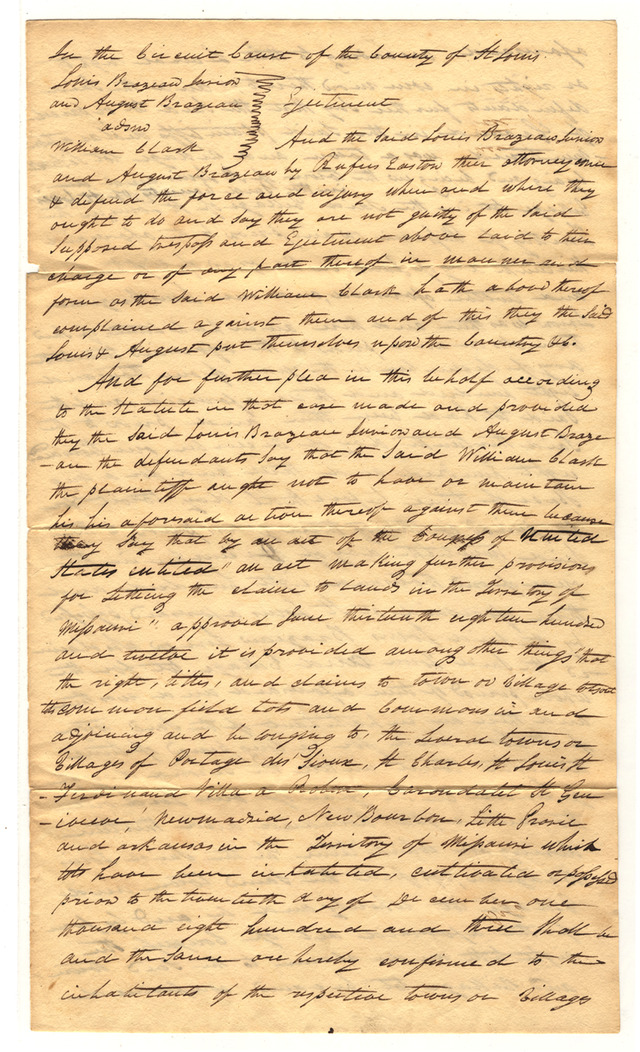 In the Circuit Court of the County of St Louis
Louis Brazeau Junior
and August Brazeau Ejectment
adsm
William Clark And the Said Louis Brazeau Junior
and August Brazeau by Rufus Easton their attorney come
& defend the force and injury when and where they
ought to do and Say they are not guilty of the Said
Supposed trespass and Ejectment above laid to their
charge or of any part thereof in manner and
form as the Said William Clark hath above thereof
complained against them and of this they the Said
Louis & August put themselves upon the Country &c.
And for further plea in this behalf according
to the Statute in that case made and provided
they the Said Louis Brazeau Junior and August Braze
-au the defendants Say that the Said William Clark
the plaintiff aught not to have or maintain
his his aforesaid action thereof against them because
they Say that by an act of the Congress of United
States entitled "an act making further provisions
for Settling the claims to Lands in the Territory of
Missouri" approved June thirteenth eighteen hundred
and twelve it is provided among other things "that
the right, titles, and claims to town or Village lots out
lots common field Lots and Commons in and
adjoining and belonging to, the Several towns or
Villages of Portage des Sioux, St Charles, St Louis, St
-Ferdinand Villa a Robert, Carondalet St Gen
-ieveve, Newmadrid, New Bourbon, Little Prarie
and arkansas in the Territory of Missouri which
lots have been inhabited, cultivated or possessed
prior to the twentieth day of December one
thousand eight hundred and three Shall be
and the Same are hereby confirmed to the
inhabitants of the respective towns or Villages